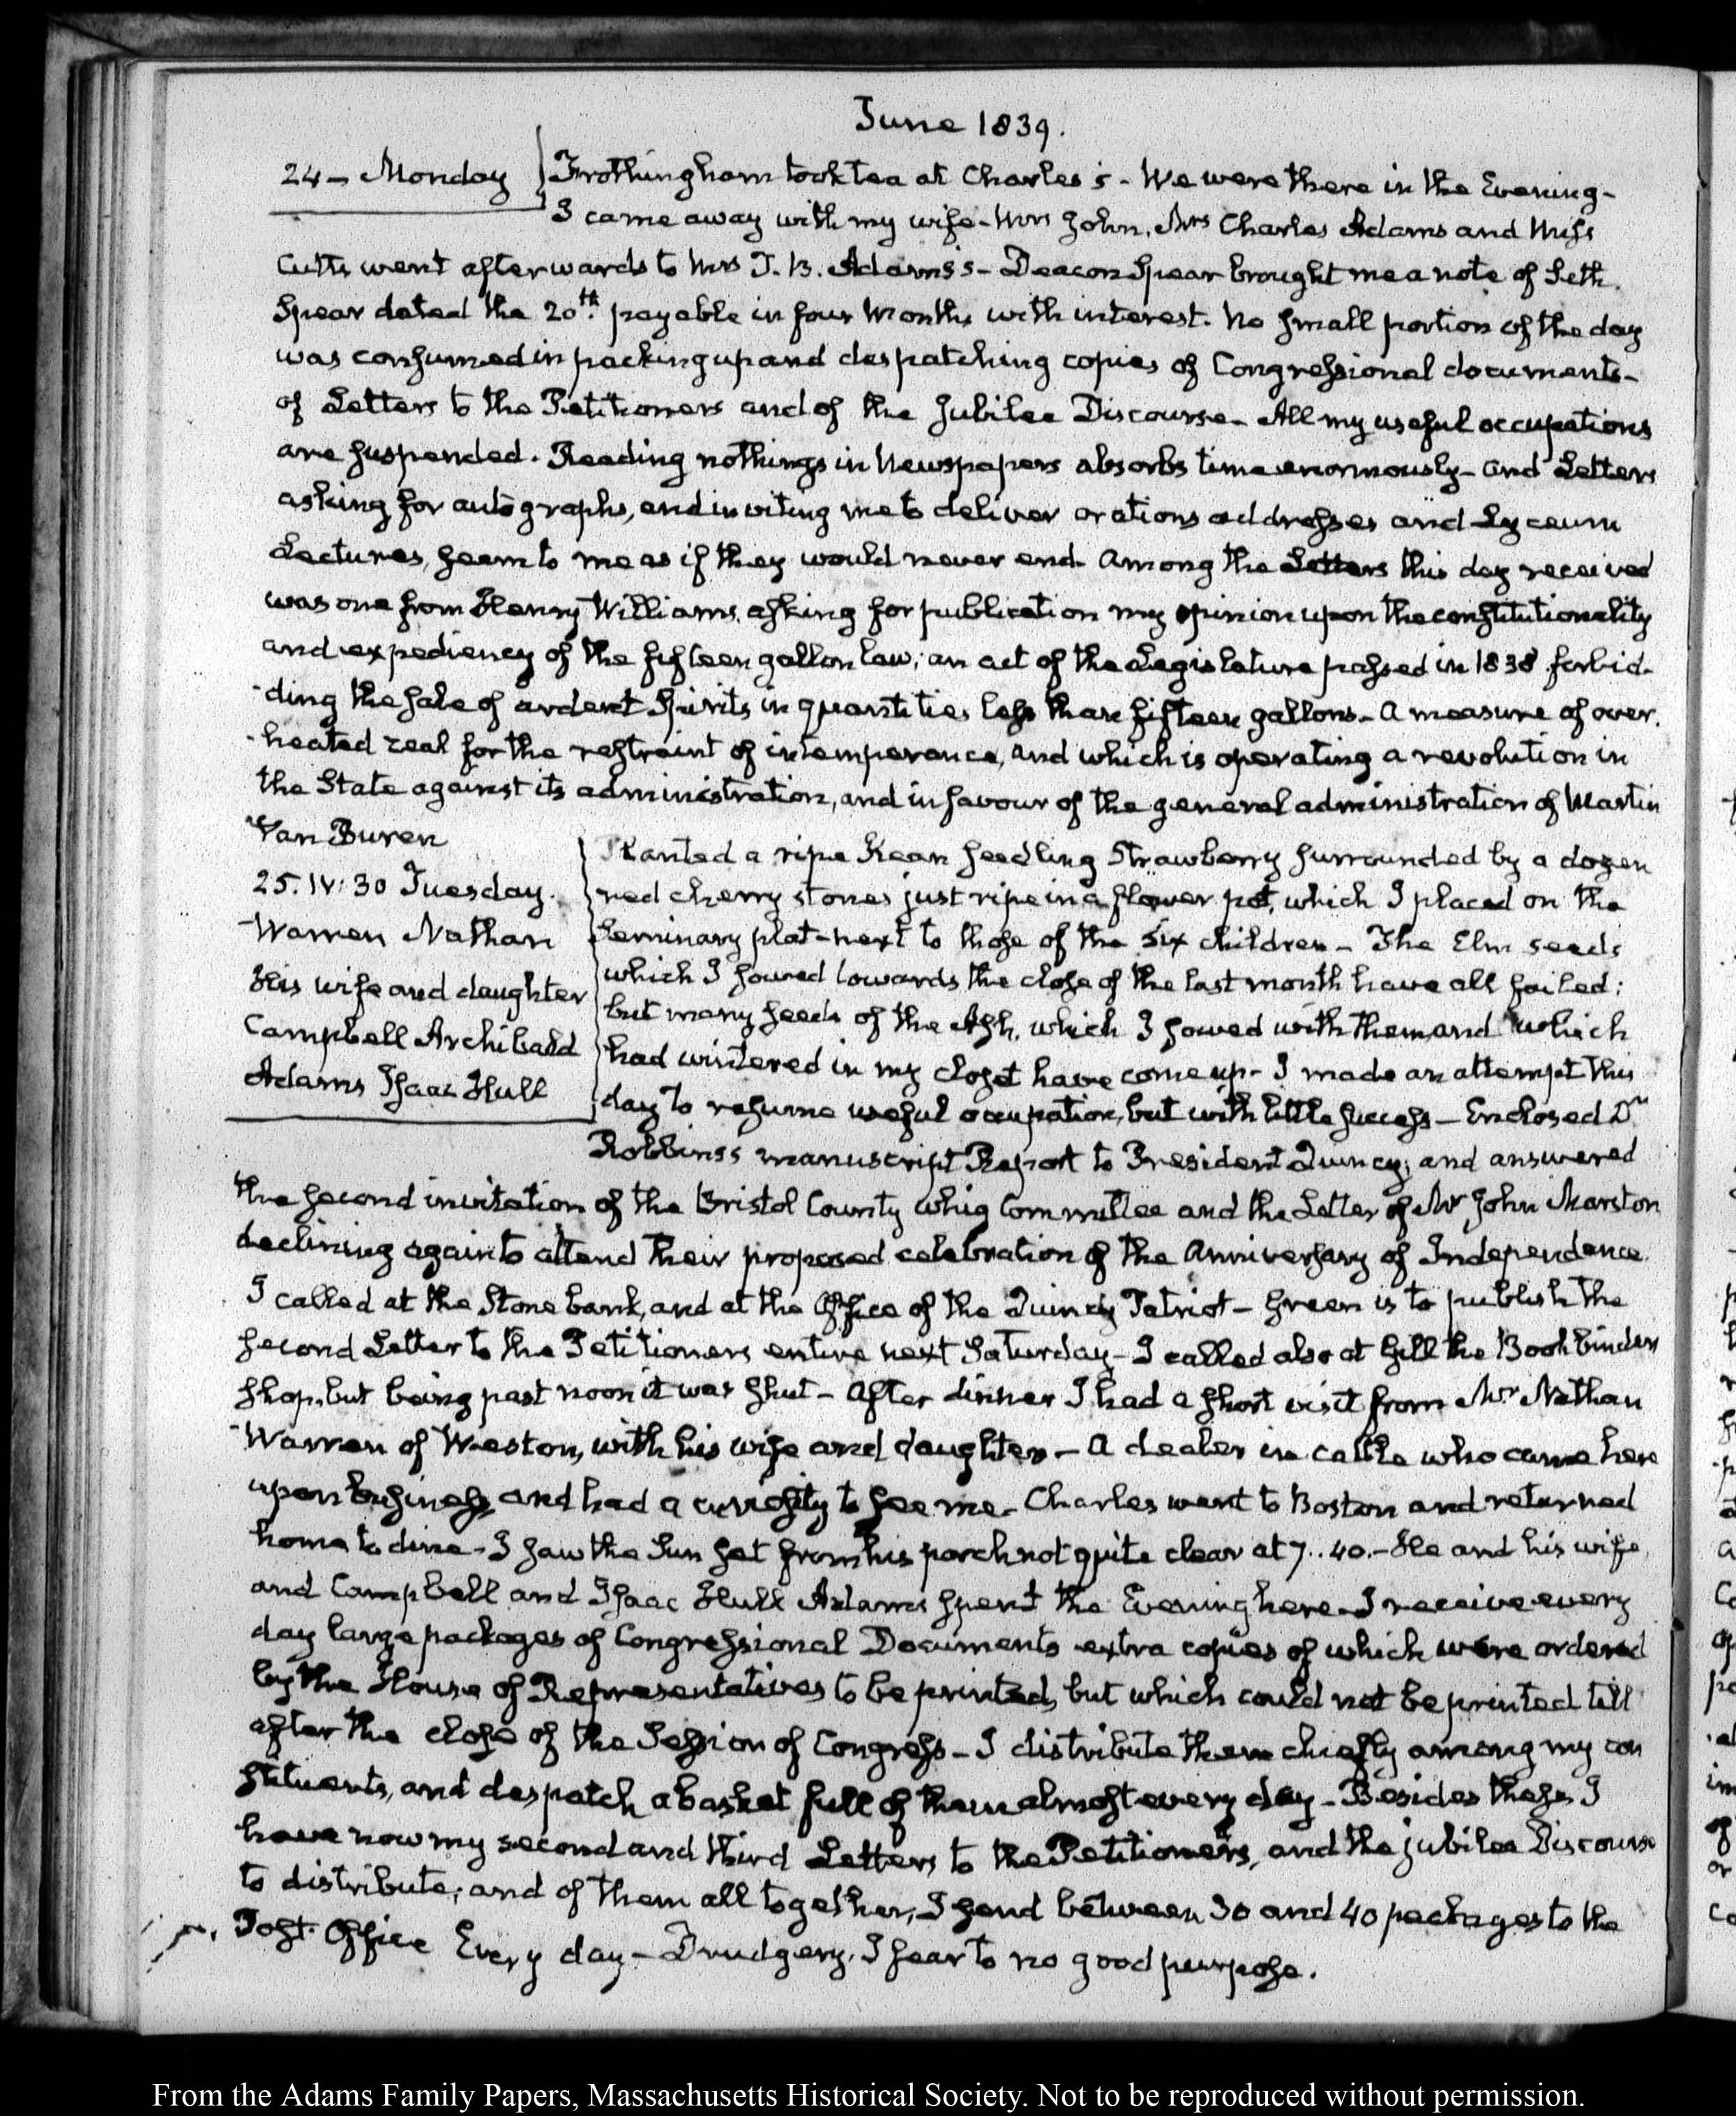 June 1839.
24 – Monday
Frothingham took tea at Charles's – We were there in the Evening –
I came away with my wife – Mrs John, Mrs Charles Adams and Miss
Cutts went afterwards to Mrs T. B. Adams's – Deacon Spear brought me a note of Seth
Spear dated the 20th. payable in four Months with interest. No small portion of the day
was consumed in packing up and despatching copies of Congressional documents –
of Letters to the Petitioners and of the Jubilee Discourse – All my useful occupations
are suspended. Reading nothings in Newspapers absorbs time enormously – and Letters
asking for autographs, and inviting me to deliver orations addresses and Lyceum
Lectures, seem to me as if they would never end. Among the Letters this day received
was one from Henry Williams, asking for publication my opinion upon the constitutionality
and expediency of the fifteen gallon law; an act of the Legislature passed in 1838 forbid-
-ding the sale of ardent Spirits in quantities less than fifteen gallons – A measure of over-
-heated zeal for the restraint of intemperance, and which is operating a revolution in
the State against its administration, and in favour of the general administration of Martin
Van Buren
25. IV: 30 Tuesday.
Warren Nathan
His wife and daughter
Campbell Archibald
Adams Isaac Hull
Planted a ripe Kean seedling Strawberry surrounded by a dozen
red cherry stones just ripe in a flower pot, which I placed on the
Seminary plat – next to those of the six children – The Elm seeds
which I sowed towards the close of the last month have all failed;
but many seeds of the Ash, which I sowed with them and which
had wintered in my closet have come up – I made an attempt this
day to resume useful occupation, but with little success – Enclosed Dr
Robbins's manuscript Report to President Quincy; and answered
the second invitation of the Bristol County Whig Committee and the Letter of Mr John Marston
declining again to attend their proposed celebration of the Anniversary of Independence.
I called at the Stone bank, and at the Office of the Quincy Patriot – Green is to publish the
second Letter to the Petitioners entire next Saturday – I called also at Gill the Bookbinders
shop, but being past noon it was shut – After dinner I had a short visit from Mr Nathan
Warren of Weston, with his wife and daughter – A dealer in cattle who came here
upon business, and had a curiosity to see me – Charles went to Boston and returned
home to dine – I saw the Sun set from his porch not quite clear at 7..40. – He and his wife,
and Campbell and Isaac Hull Adams spent the Evening here – I receive every
day large packages of Congressional Documents extra copies of which were ordered
by the House of Representatives to be printed, but which could not be printed till
after the close of the Session of Congress – I distribute them chiefly among my con
stituents, and despatch a basket full of them almost every day – Besides these I
have now my second and third Letters to the Petitioners, and the jubilee Discourse
to distribute; and of them all together, I send between 30 and 40 packages to the
Post-Office Every day – Drudgery, I fear to no good purpose.
From the Adams Family Papers, Massachusetts Historical Society. Not to be reproduced without permission.